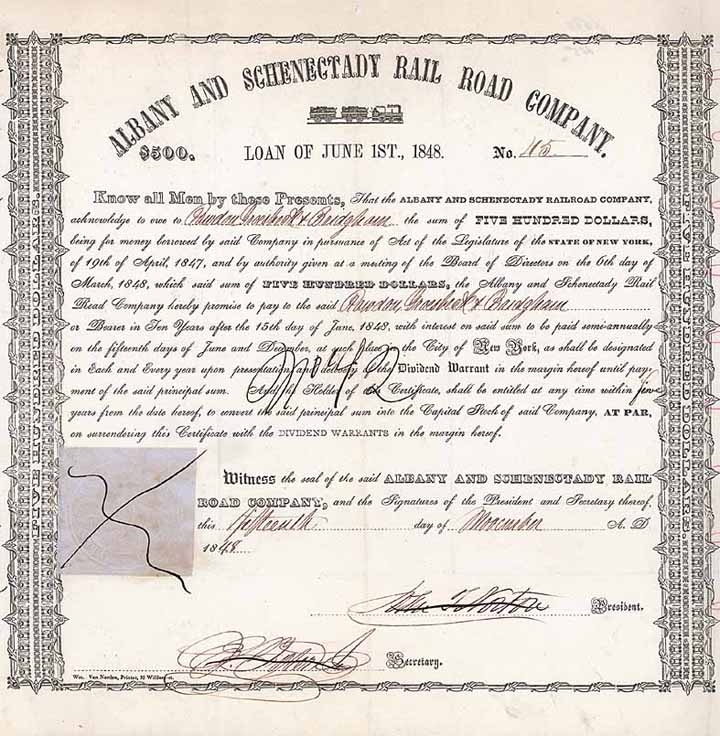 ALBANY AND SCHENECTADY RAIL ROAD COMPANY.
$500. LOAN OF JUNE 1ST., 1848. No. 45
Know all Men by these Presents, That the ALBANY AND SCHENECTADY RAILROAD COMPANY,
acknowledge to owe to the sum of FIVE HUNDRED DOLLARS,
being for money borrowed by said Company in pursuance of Act of the Legislature of the STATE OF NEW YORK,
of 19th of April, 1847, and by authority given at a meeting of the Board of Directors on the 6th day of
March, 1848, which said sum of FIVE HUNDRED DOLLARS, the Albany and Schenectady Rail
Road Company hereby promise to pay to the said
or Bearer in Ten Years after the 15th day of June, 1848, with interest on said sum to be paid semi-annually
on the fifteenth days of June and December, at such place in the City of New York, as shall be designated
in Each and Every year upon presentation and delivery of the Dividend Warrant in the margin hereof until pay-
ment of the said principal sum. And the Holder of Certificate, shall be entitled at any time within five
years from the date hereof, to convert the said principal sum into the Capital Stock of said Company, AT PAR,
on surrendering this Certificate with the DIVIDEND WARRANTS in the margin hereof.
Witness the seal of the said ALBANY AND SCHENECTADY RAIL
ROAD COMPANY, and the Signatures of the President and Secretary thereof,
this fifteenth day of November A. D
1848
President.
Secretary.
Wm. Van Norden, Printer,